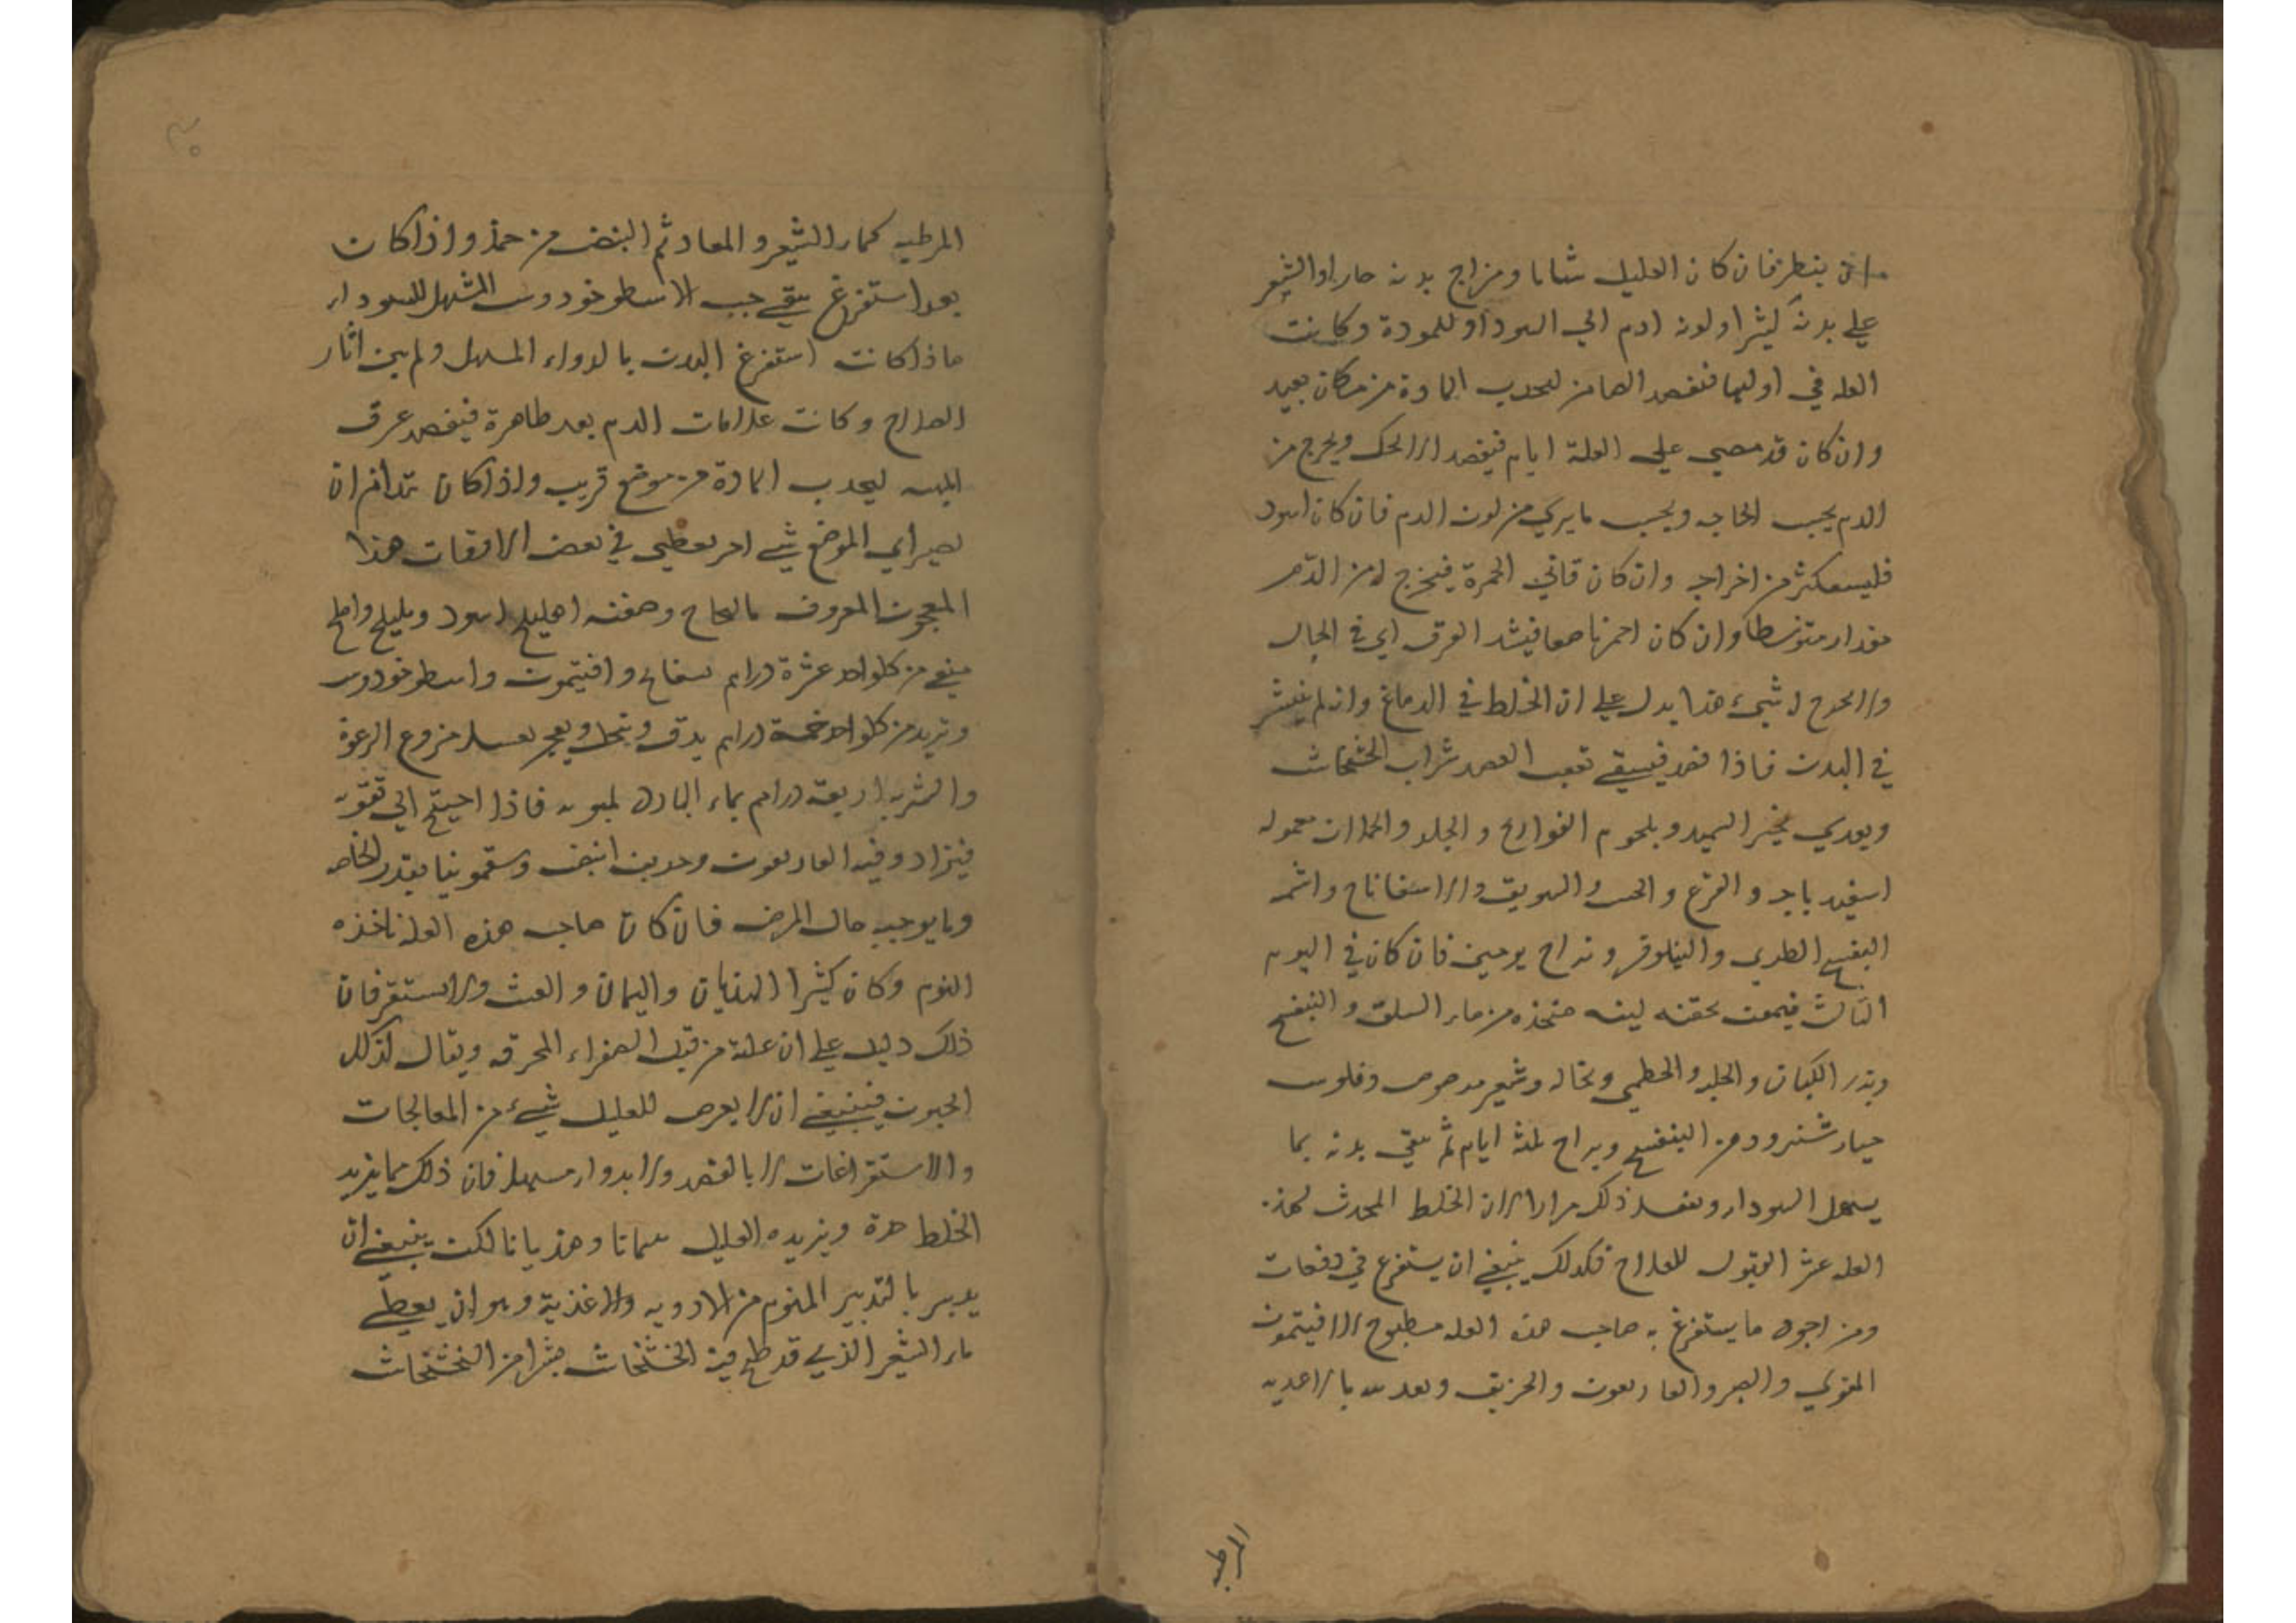 ان ينظر فان كان العليل شابا ومزاج بدنه حارا والشعر
علي بدنه كثيرا ولونه ادم الي السواد او للمودة وكانت
العله في اوليها فنفصد الصافن لىجدب المادة من مكان بعيد
وان كان قد مضي علي العلة ايام فيفصد الاكحل ويخرج من
الدم بحسب الحاجه وبحسب مايري من لون الدم فان كان اسود
فليستكثر من اخراجه وان كان قاني الحمرة فيخرج له من الدم
مقدار متوسطا وان كان احمر ناصعا فيشد العرق اي في الحال
ولايخرج له شيء هذا يدل علي ان الخلط في الدماغ وانه لم ينتشر
في البدن فاذا فصد فيسقي بعقب الفصد شراب الخشخاش
ويغدي بخبز السميد وبلحوم الفراريج و الجدا والحملان معموله
اسفيد باجه و القرع و الخس والسويق والاسفاناخ واشمه
البنفسج الطري والنيلوفر ونراح يومين فان كان في اليوم
الثالث فيحقن بحقنه لينه متخذه من ماء السلق و البنفسج
وبزر الكتان و الحلبه والخطمي ونخاله وشعير مرضوض وفلوس
خيار شنبر ودهن البنفسج ويراح ثلثة ايام ثم ينقي بدنه بما
يسهل السوداء ويفعل ذلك مرارا لان الخلط المحدث لهذه
العله عسر القبول للعلاج فكذلك ينبغي ان يستفرغ في دفعات
ومن اجود ما يستفرغ به صاحب هذه العله مطبوخ الافيتمون
المقوي والصبر والغاريقون والخربق وبعد به بالاغديه
المرطبه
المرطبه كماء الشعير و المعاد ثم البنفسج من حمذ واذا كان
بعد استفرغ يسقي حب الاسطوخودوس المسهل للسوداء
فاذا كانت استفرغ البدن بالدواء المسهل ولم يبن اثار
الصلاح وكانت علامات الدم بعد ظاهرة فيفصد عرق
الجبهه ليجدب المادة من موضع قريب واذا كان
يصير الي الموضع شي اخر يعطي في بعض الاوقات هذا
المعجون المعروف بالنجاح وصفته اهليلج اسود وبليلج واملج
ينقع من كلواحد عشرة دراهم بسفايج وافتيمون واسطوخودوس
وتربد من كلواحد خمسة دراهم يدق وينخل ويعجن بعسل منزوع الرغوة
والشربه اربعة دراهم بماء البادرنجبويه فاذا احتيج الي تقويه
فيزاد فيه الغاريقون وخربق ابيض وسقمونيا بقدر الحاجه
وما يوجبه حال المرض فان كان صاحب هذه العله ناخذه
النوم وكان كثير الهذيان والهيمان و العبث والاستقر فان
ذلك دليل علي ان علته من قبل الصفراء المحرقه ويقال لذلك
الجنون فينبغي ان لا يعرض للعليل شيء من المعالجات
والاستفراغات لا بالفصد ولا بدواء مسهل فان ذلك مما يزيد
الخلط حدة ويزيده العليل هيمانا وهذيانا لكن ينبغي ان
يدبر بالتدبير المنوم من الادويه والاغذية وهو ان يعطي
ماء الشعير الذي قد طبخ فيه الخشخاش قشرا من الخشخاش